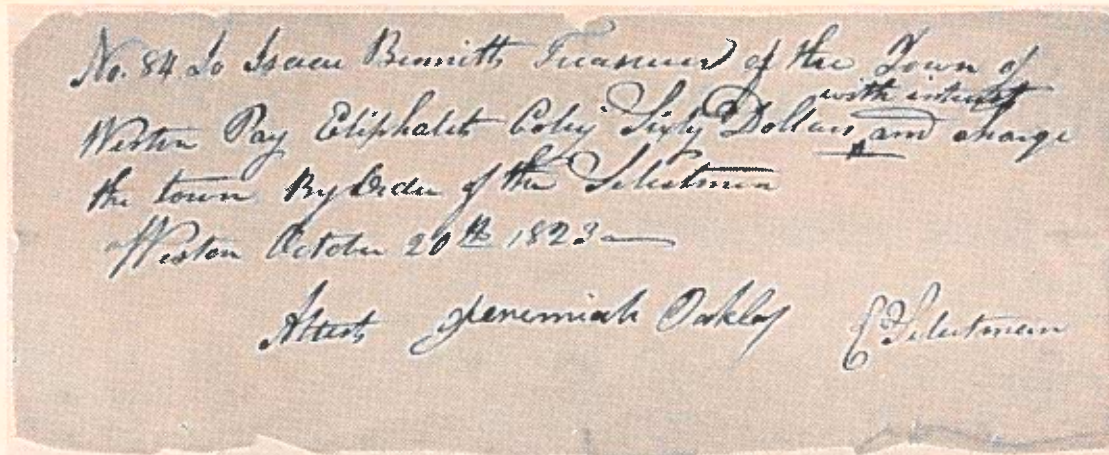 No. 84 To Isaac Bennitt Treasurer of the Town of
with interest
Weston Pay Eliphalet Coley Sixty Dollars and charge
the town By Order of the Selectmen
Weston October 20th 1823
Attest Jeremiah Oakley Selectman